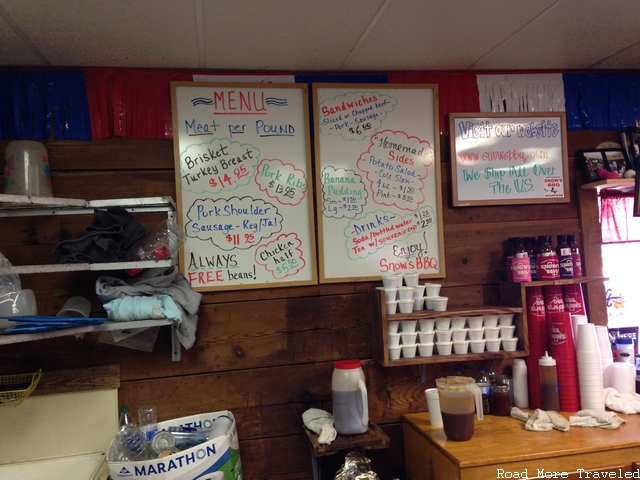 MENU
Meat per Pound
Brisket
Turkey Breast
$14.95
Pork Ribs
$13.95
Pork Shoulder
Sausage - Reg/Jal
$11.95
Chicken
half
$5.50
Always
FREE beans!
Sandwiches
- Sliced or Chopped Beef
- Pork - Sausage -
Homemad
Sides
- Potato Salad -
- Cole Slaw -
Banana
Pudding
Drinks -
Soda/bottled water
Tea w/ souvenir cup
Enjoy!
Snow's BBQ
Visit our website
www.snowsbbq.com
We Ship All Over
The U.S.
SNOW'S
BBQ
MARATHON
MARATHON
Road More Traveled